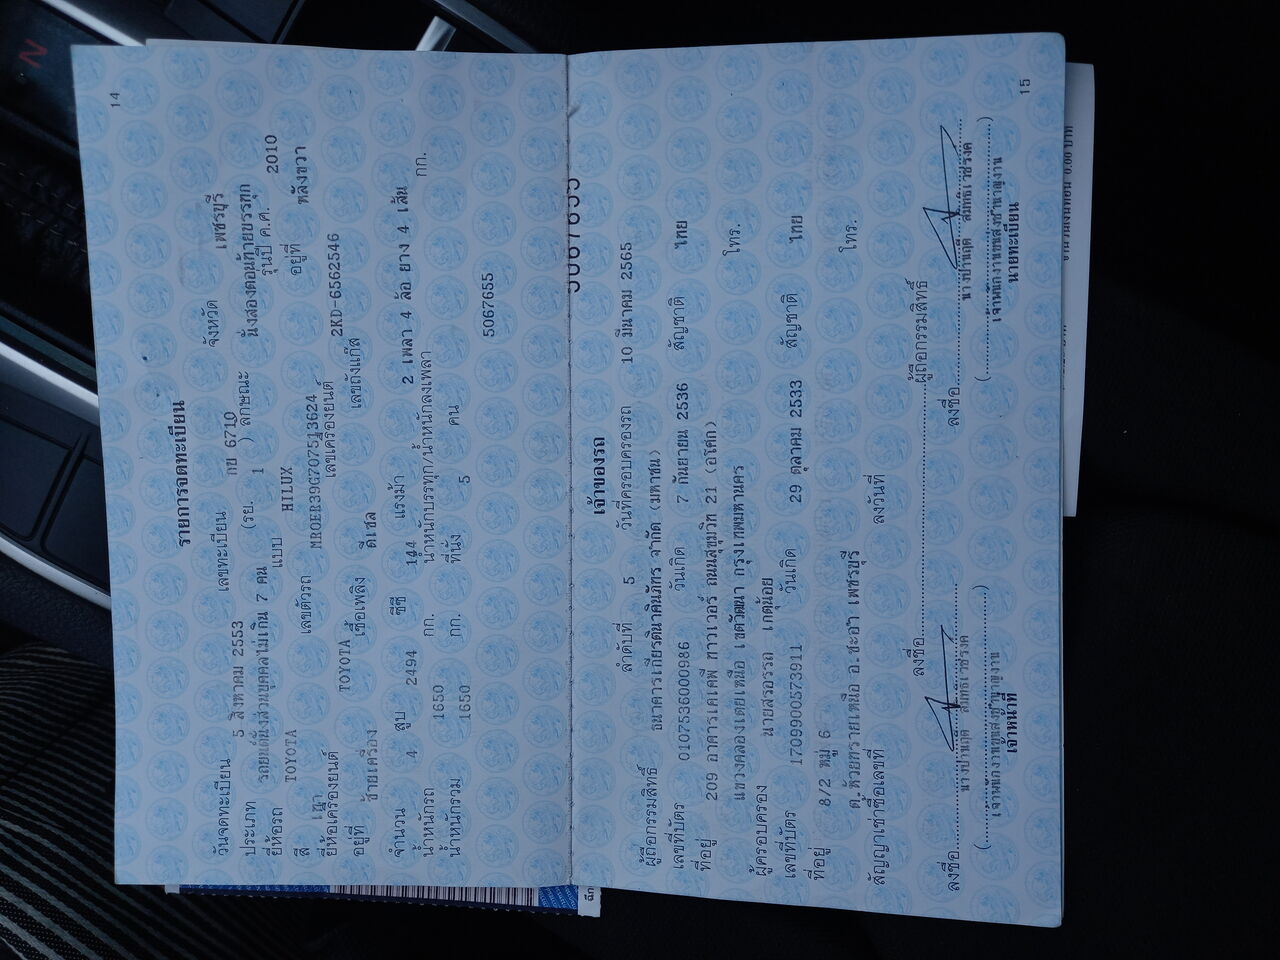 14
รายการจดทะเบียน
วันจดทะเบียน 5 สิงหาคม 2553 เลขทะเบียน กย 6710 จังหวัด เพชรบุรี
ประเภท รถยนต์นั่งส่วนบุคคลไม่เกิน 7 คน (รย. 1 ) ลักษณะ นั่งสองตอนท้ายบรรทุก
ยี่ห้อรถ TOYOTA แบบ HILUX รุ่นปี ค.ศ. 2010
สี เทา เลขตัวรถ MROER39G707513624 อยู่ที่ หลังขวา
ยี่ห้อเครื่องยนต์ TOYOTA เลขเครื่องยนต์ 2KD-6562546
อยู่ที่ ซ้ายเครื่อง เชื้อเพลิง ดีเซล เลขถังแก๊ส
จำนวน 4 สูบ 2494 ซีซี 144 แรงม้า 2 เพลา 4 ล้อ ยาง 4 เส้น
น้ำหนักรถ 1650 กก. น้ำหนักบรรทุก/น้ำหนักลงเพลา กก.
น้ำหนักรวม 1650 กก. ที่นั่ง 5 คน
5067655
5067655
เจ้าของรถ
ลำดับที่ 5 วันที่ครอบครองรถ 10 มีนาคม 2565
ผู้ถือกรรมสิทธิ์ ธนาคารเกียรตินาคินภัทร จำกัด (มหาชน)
เลขที่บัตร 0107536000986 วันเกิด 7 กันยายน 2536 สัญชาติ ไทย
ที่อยู่ 209 อาคารเคเคพี ทาวเวอร์ ถนนสุขุมวิท 21 (อโศก)
แขวงคลองเตยเหนือ เขตวัฒนา กรุงเทพมหานคร โทร.
ผู้ครอบครอง นายสรอรรถ เกตุน้อย
เลขที่บัตร 1709900573911 วันเกิด 29 ตุลาคม 2533 สัญชาติ ไทย
ที่อยู่ 8/2 หมู่ 6
ต.ห้วยทรายเหนือ อ.ชะอำ เพชรบุรี โทร.
สัญญาเช่าซื้อเลขที่ ลงวันที่
ลงชื่อ ผู้ถือกรรมสิทธิ์
ลงชื่อ ลงชื่อ
เจ้าพนักงานขนส่งชำนาญงาน เจ้าพนักงานขนส่งชำนาญงาน
เจ้าหน้าที่ นายทะเบียน
15